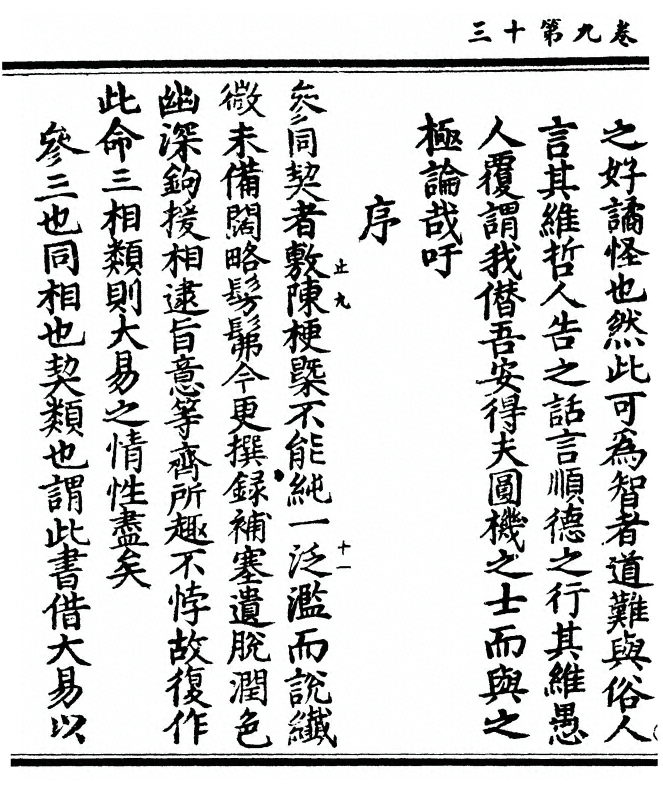 卷九第十三
之好譎怪也然此可為智者道難與俗人
言其維哲人告之話言順德之行其維愚
人覆謂我僣吾安得夫圓機之士而與之
極論哉吁
序
止九
十一
參同契者敷陳梗槩不能純一泛濫而說纖
微未備闊略髣髴今更撰録補塞遺脫潤色
幽深鉤援相逮旨意等齊所趣不悖故復作
此命三相類則大易之情性盡矣
參三也同相也契類也謂此書借大易以